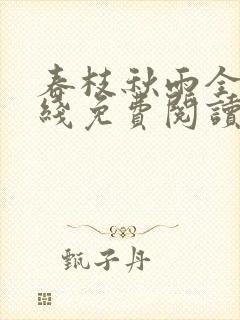 春枝秋雨全
綫免費閱讀
甄子丹